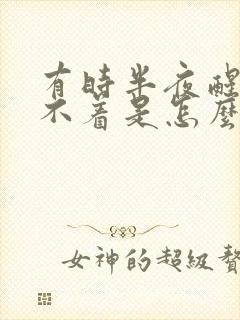 有時半夜醒
不着是怎麼
女神的超級贅